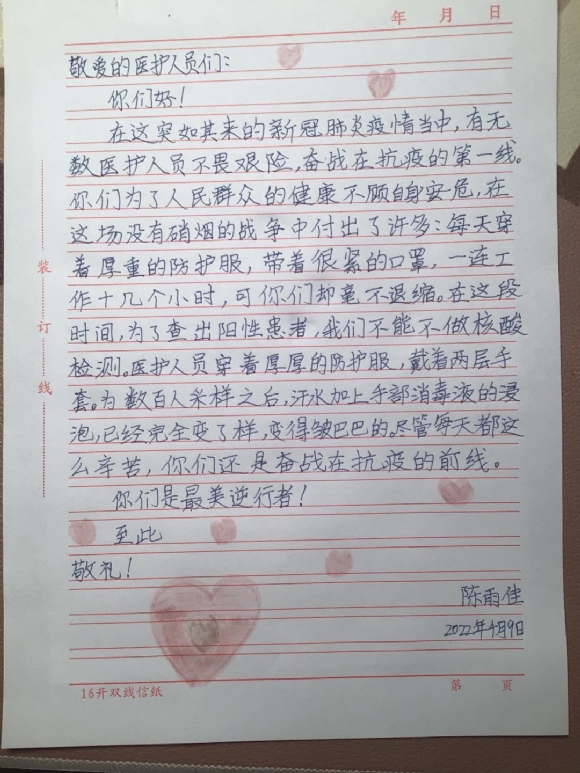 年 月 日
敬爱的医护人员们:
你们好!
在这突如其来的新冠肺炎疫情当中,有无
数医护人员不畏艰险,奋战在抗疫的第一线。
你们为了人民群众的健康不顾自身安危,在
这场没有硝烟的战争中付出了许多:每天穿
着厚重的防护服,带着很紧的口罩,一连工
作十几个小时,可你们却毫不退缩。在这段
时间,为了查出阳性患者,我们不能不做核酸
检测。医护人员穿着厚厚的防护服,戴着两层手
套。为数百人采样之后,汗水加上手部消毒液的浸
泡,已经完全变了样,变得皱巴巴的。尽管每天都这
么辛苦,你们还是奋战在抗疫的前线。
你们是最美逆行者!
至此
敬礼!
陈雨佳
2022年4月9日
装
订
线
16开双线信纸
第 页